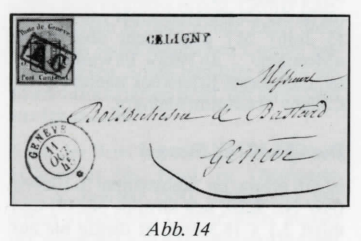 Poste de Genève
Port Cantonal
CELIGNY
Messieurs
Boisduchesne & Bastard
Genève
GENÈVE
11
OCT
Abb. 14